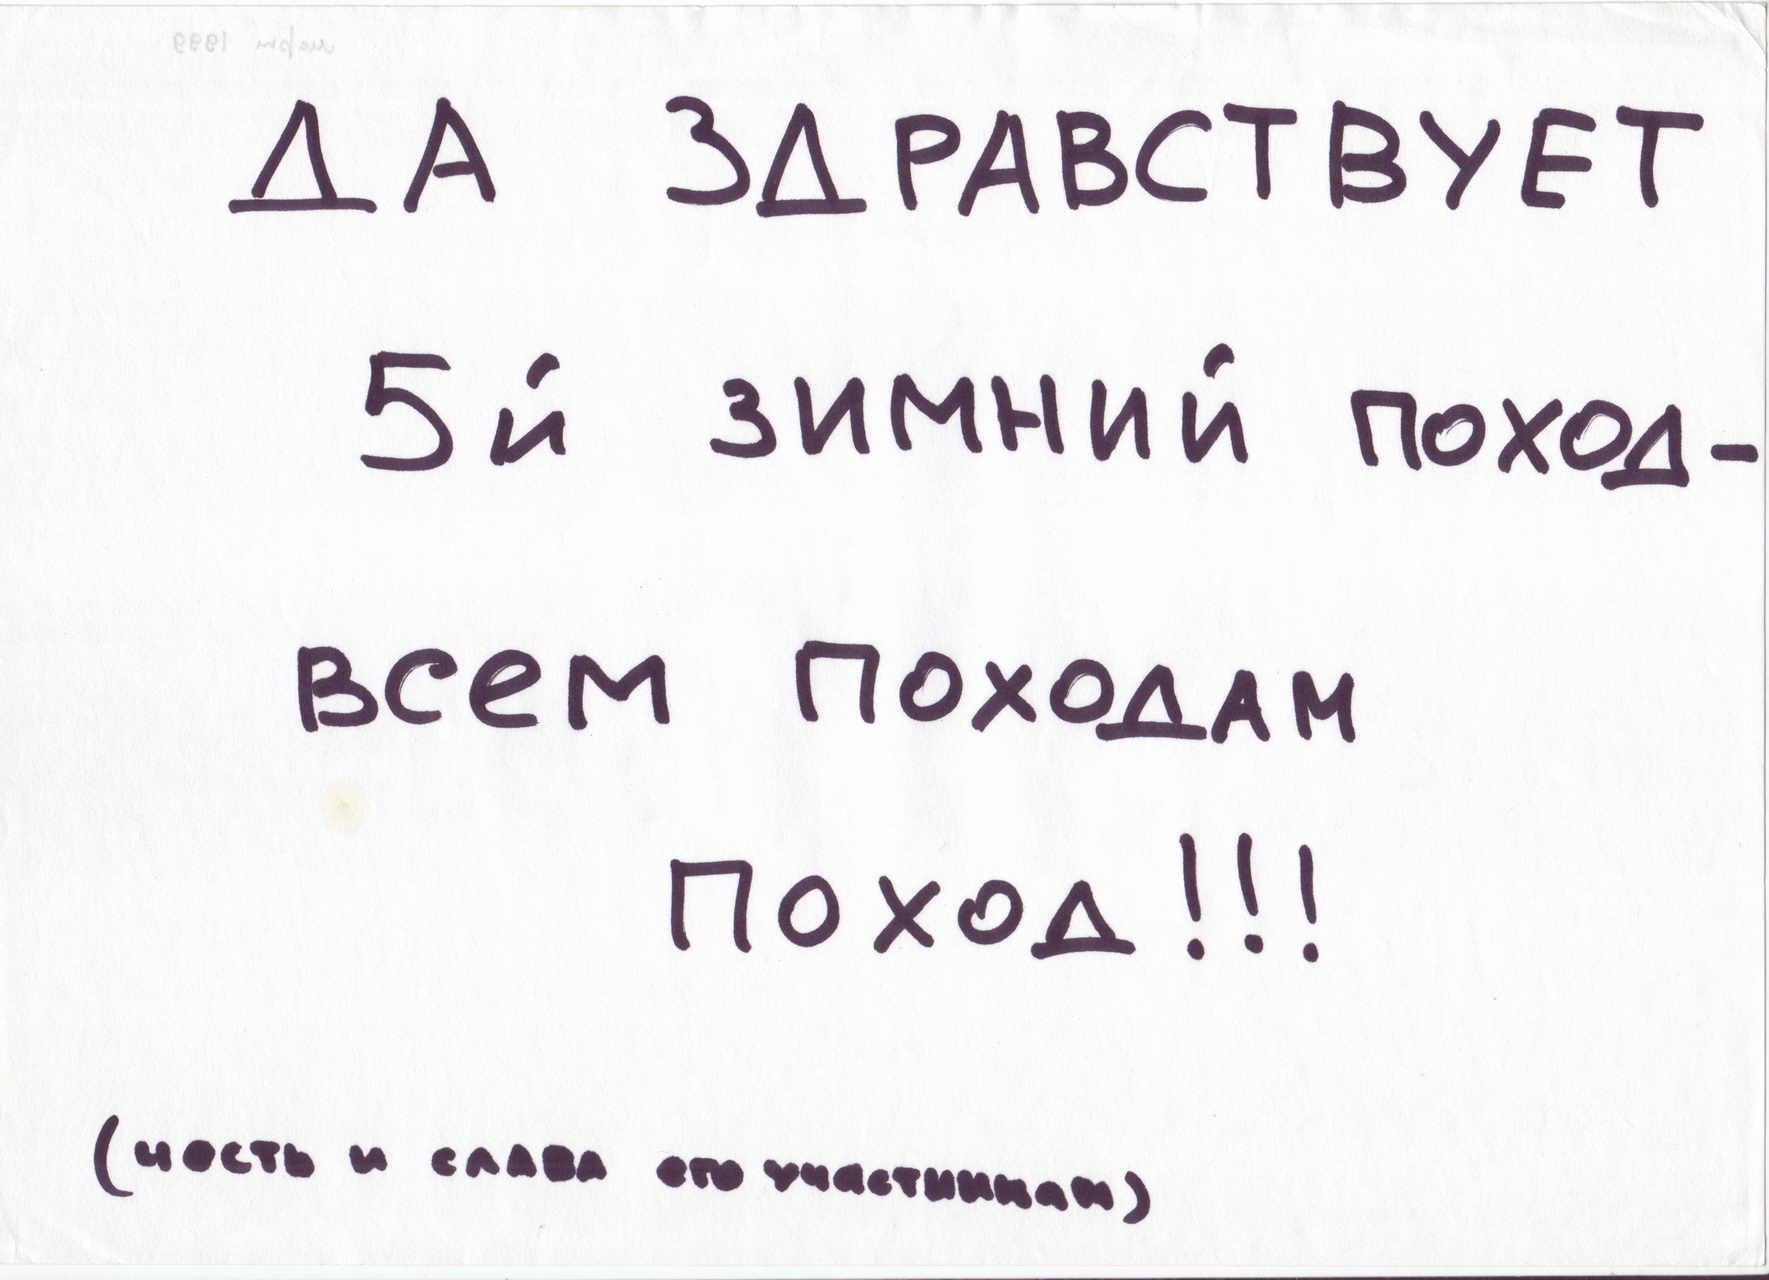 март 1999
ДА ЗДРАВСТВУЕТ
5й ЗИМНИЙ ПОХОД-
ВСЕМ ПОХОДАМ
ПОХОД!!!
(честь и слава его участникам)